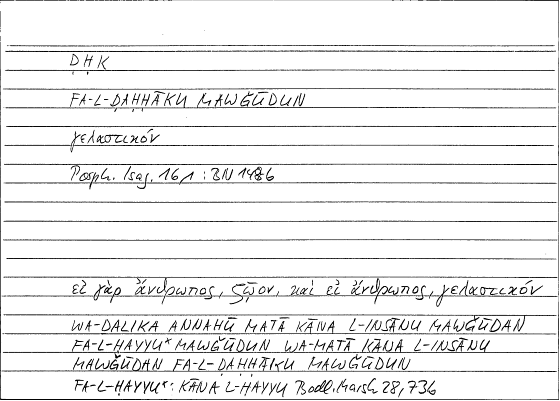 ḌḤK
FA-L-ḌAḤḤĀKU MAWǦŪDUN
γελαστικόν
Porph. Isag. 16,1 : BN 1486
εἰ γὰρ ἄνθρωπος, ζῷον, καὶ εἰ ἄνθρωπος, γελαστικόν
WA-DALIKA ANNAHŪ MATĀ KĀNA L-INSĀNU MAWǦŪDAN
FA-L-ḤAYYU* MAWǦŪDUN WA-MATĀ KĀNA L-INSĀNU
MAWǦŪDAN FA-L-ḌAḤḤĀKU MAWǦŪDUN
FA-L-ḤAYYU*: KĀNA L-ḤAYYU Bodl. Marsh 28,736